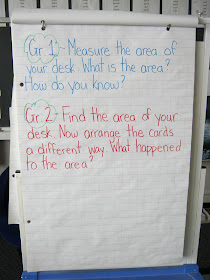 Gr. 1 - Measure the area of
your desk. What is the area?
How do you know?
Gr. 2 - Find the area of your
desk. Now arrange the cards
a different way. What happened
to the area?